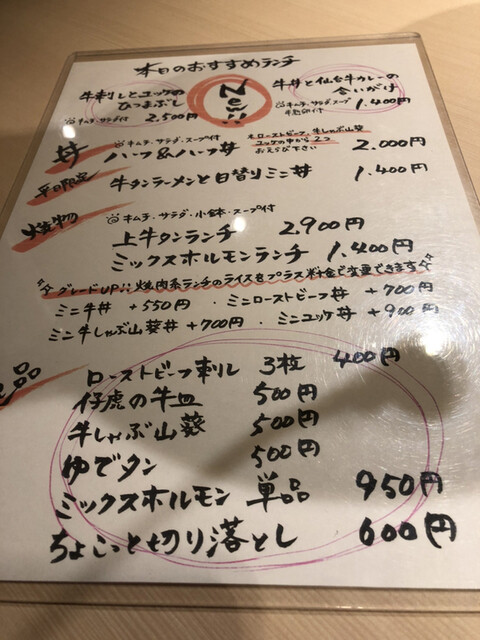 本日のおすすめランチ
New!!
牛刺しとユッケの
ひつまぶし
キムチ、サラダ付 2,500円
牛丼と仙台牛カレーの
合いがけ
キムチ、サラダ、スープ
1,400円
丼
キムチ、サラダ、スープ付
ハーフ&ハーフ丼
*ローストビーフ、牛しゃぶ山葵
ユッケの中から2つ
お選び下さい
2,000円
平日限定
牛タンラーメンと日替りミニ丼 1,400円
焼物
キムチ・サラダ・小鉢・スープ付
上牛タンランチ 2,900円
ミックスホルモンランチ 1,400円
☆グレードUP!!焼肉系ランチのライスをプラス料金で変更できます☆
ミニ牛丼 +550円 ・ミニローストビーフ丼 +700円
ミニ牛しゃぶ山葵丼 +700円 ・ミニユッケ丼 +900円
品
ローストビーフ刺し 3枚 400円
仔虎の牛皿 500円
牛しゃぶ山葵 500円
ゆでタン 500円
ミックスホルモン 単品 950円
ちょこっと切り落とし 600円